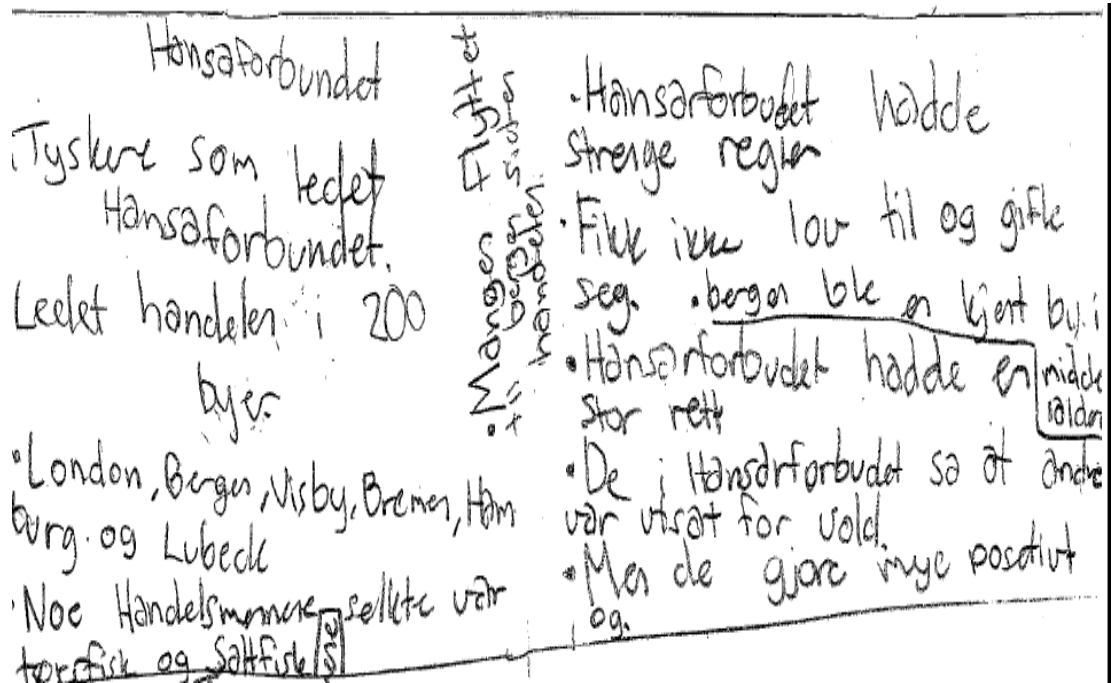 Hansaforbundet
. Tyskere som ledet
Hansaforbundet.
Ledet handelen i 200
byer.
• London, Bergen, Visby, Bremen, Ham
burg. og Lubeck
• Noe Handelsmennene sellkte var
tørrfisk og Saltfisk
• Manges flyttet
til bergen
handelen.
• Hansarforbudet hadde
strenge regler
• Fikk ikke lov til og gifte
seg. • bergen ble en kjent by i
middelalderen
• Hansarforbudet hadde en
stor rett
• De i Hansarforbudet sa at andre
var utsat for vold.
• Men de gjore mye posetivt
og.